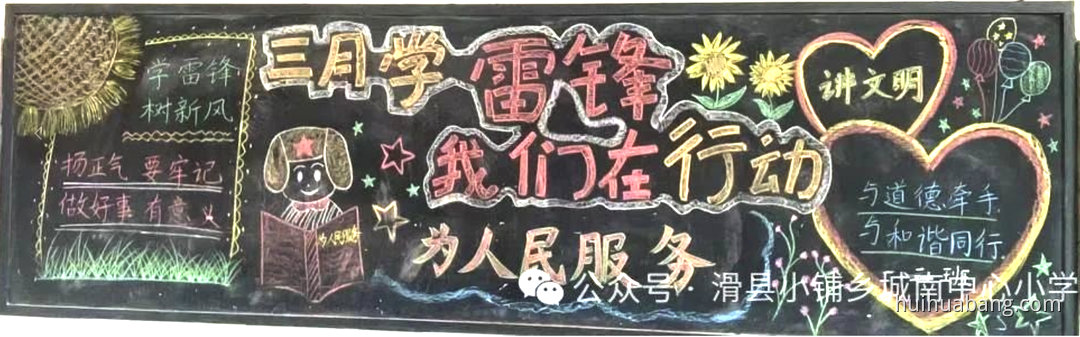 学雷锋
树新风
扬正气 要牢记
做好事 有意义
三月学雷锋
我们在行动
为人民服务
为人民服务
讲文明
与道德牵手
与和谐同行
二班
公众号·滑县小铺乡城南中心小学
huihuabang.com